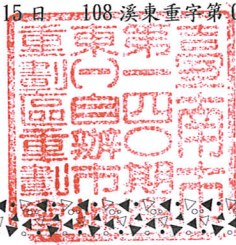 15日 108溪東重字第
臺南市
第一四〇期
東(一)自辦市
重劃區重劃